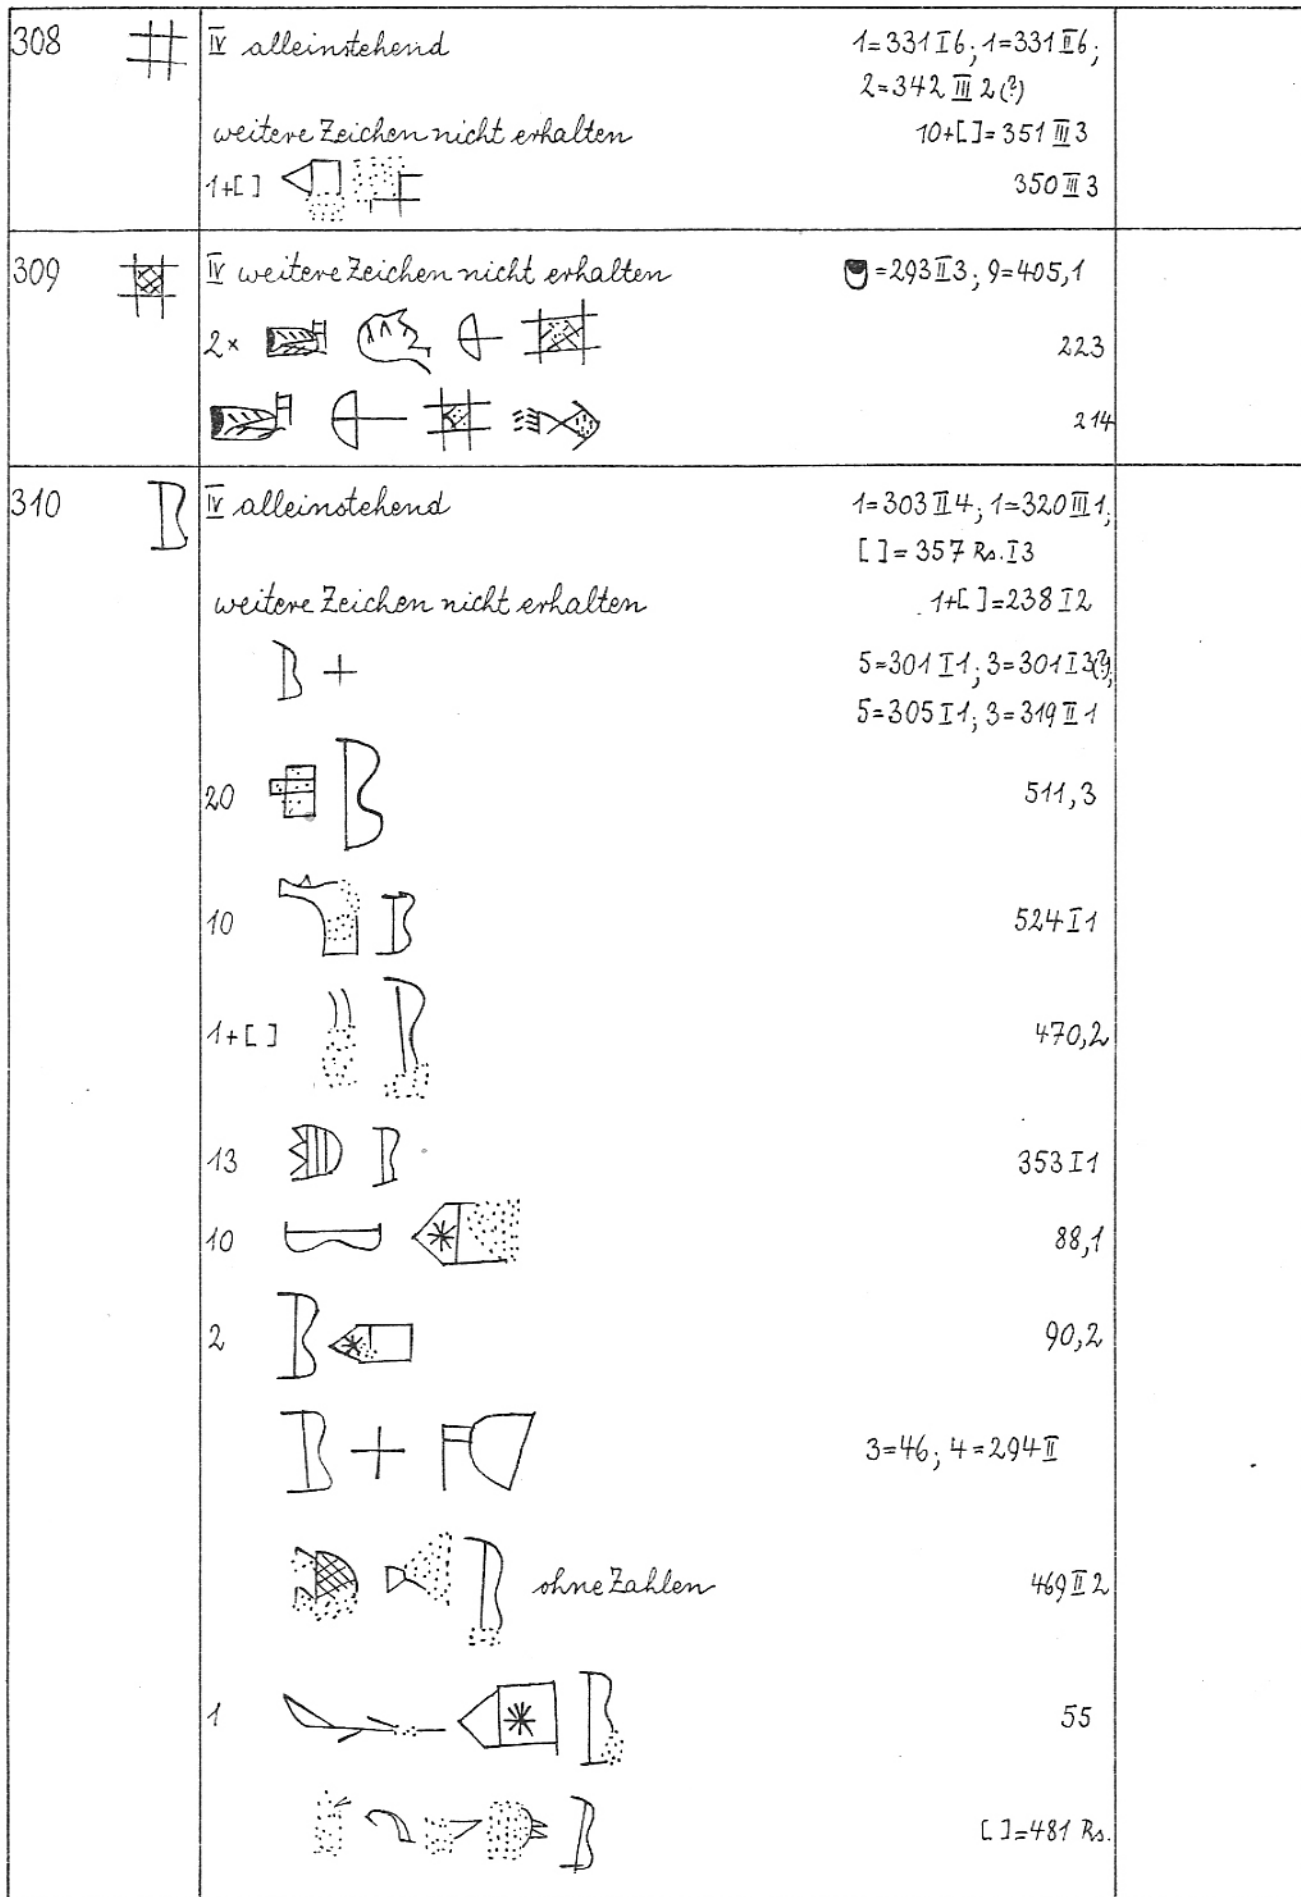 308 IV alleinstehend 1=331 I 6; 1=331 II 6;
2=342 III 2(?)
weitere Zeichen nicht erhalten 10+[ ]=351 III 3
1+[ ] 350 III 3
309 IV weitere Zeichen nicht erhalten =293 II 3; 9=405,1
2× 223
214
310 IV alleinstehend 1=303 II 4; 1=320 III 1;
[ ]=357 Rs. I 3
weitere Zeichen nicht erhalten 1+[ ]=238 I 2
5=301 I 1; 3=301 I 3(?);
5=305 I 1; 3=319 II 1
20 511,3
10 524 I 1
1+[ ] 470,2
13 353 I 1
10 88,1
2 90,2
3=46; 4=294 II
ohne Zahlen 469 II 2
1 55
[ ]=481 Rs.